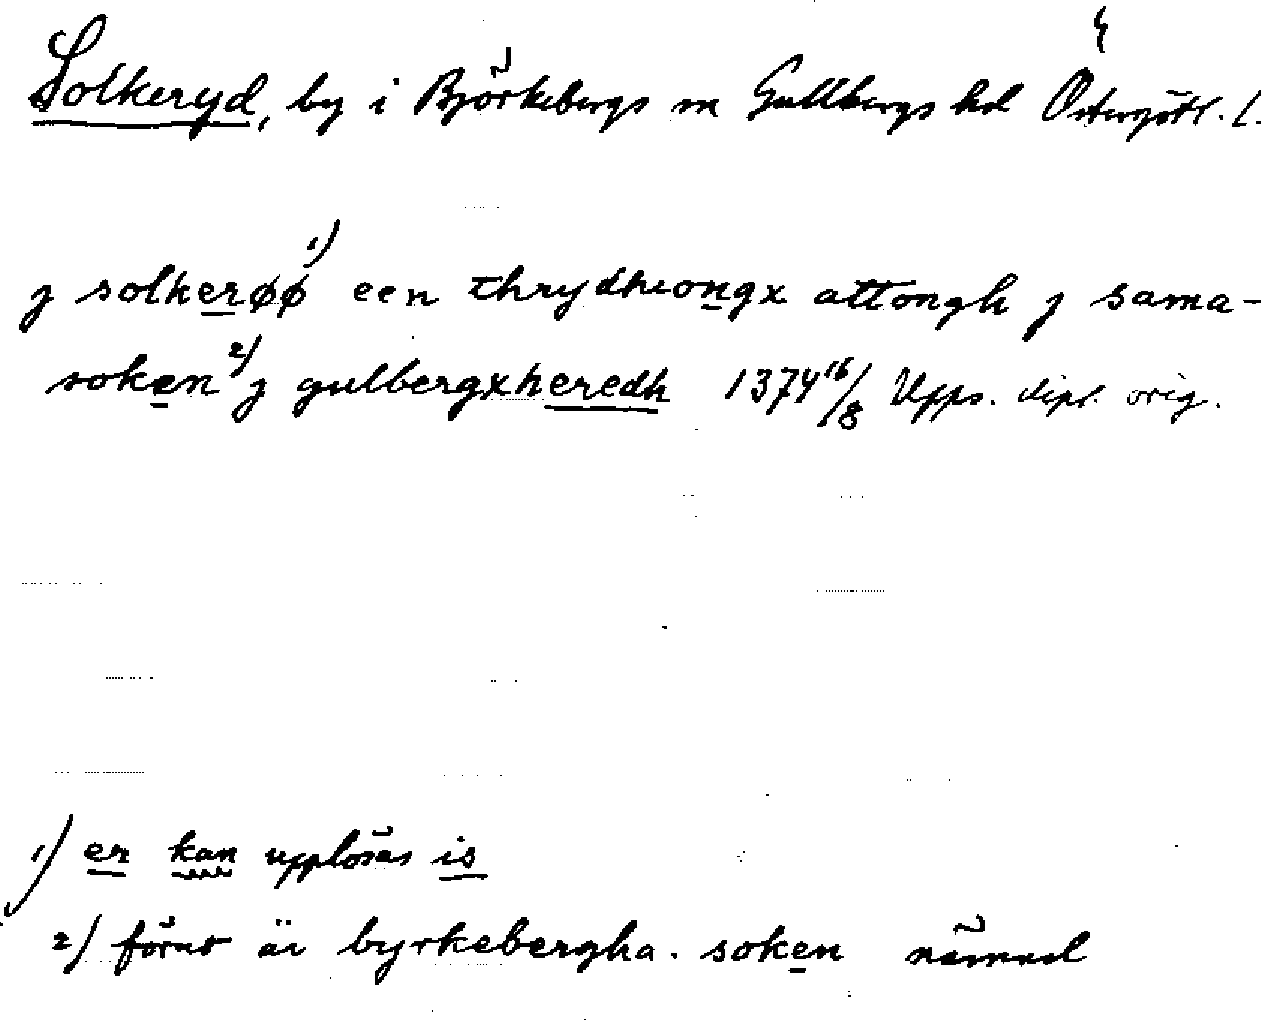 Solkeryd, by i Björkebergs sn Gullbergs hd Östergötl. l.
j solkerøø 1) een thrydhiongx attongh j sama-
soken 2) j gulbergxheredh 1374 16/8 Upps. dipl. orig.
1) er kan upplösas is
2) förut är byrkebergha. soken nämnd